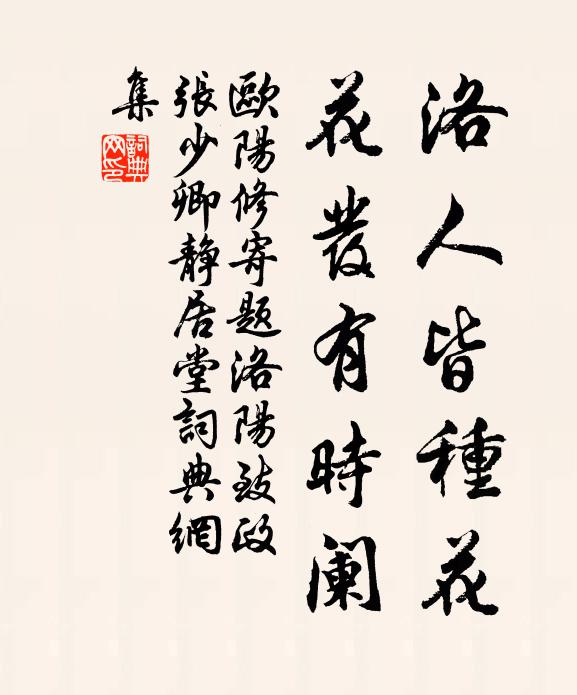 洛人皆種花
花發有時闌
歐陽修寄題洛陽致政
張少卿靜居堂詞典網
集
詞典
网印